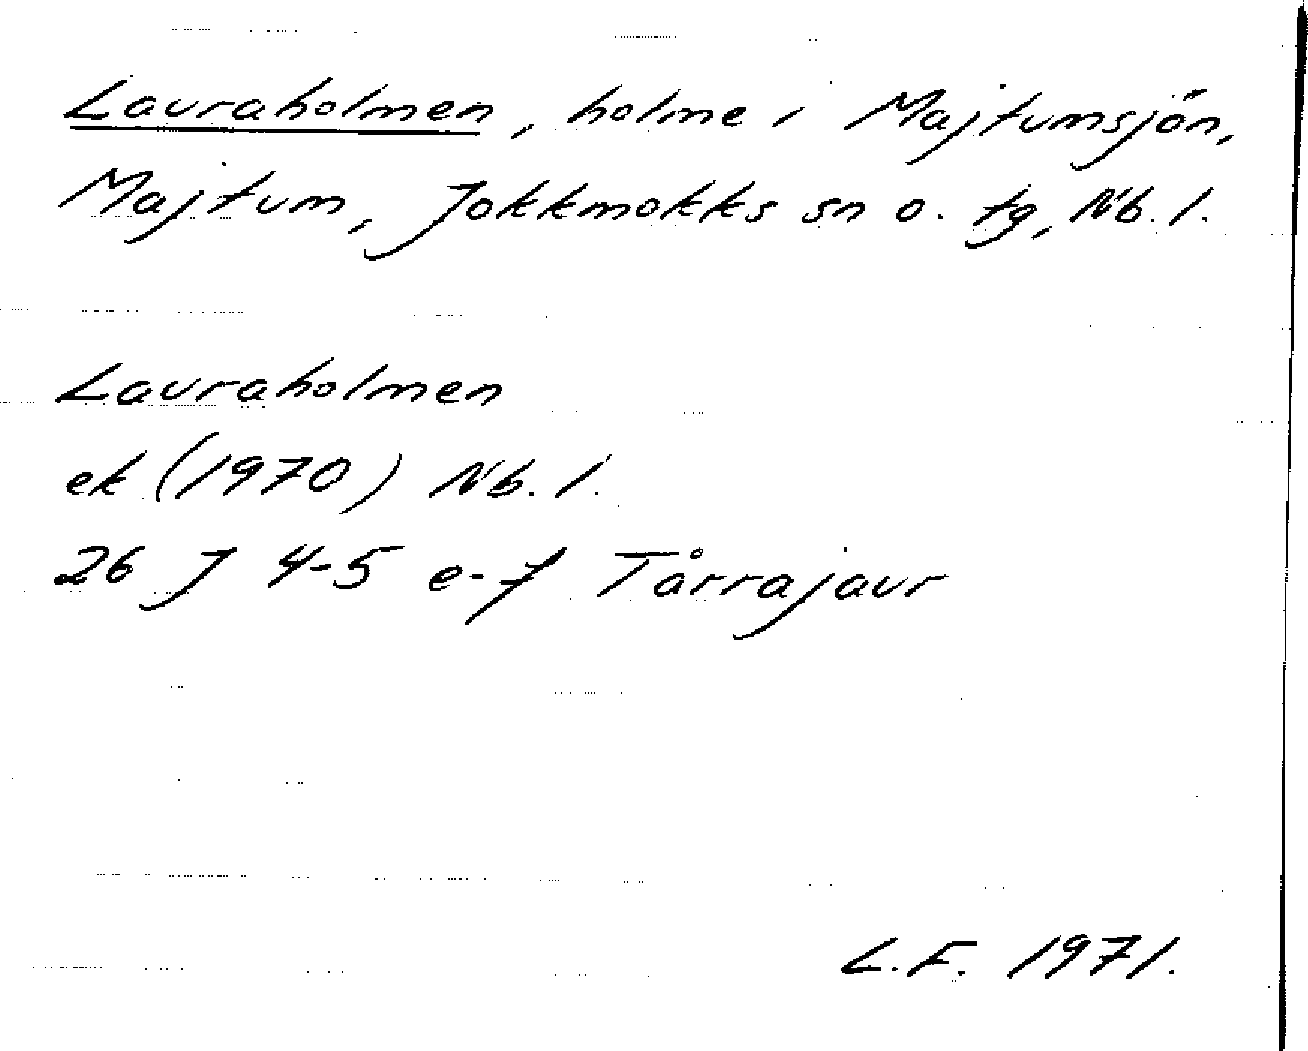 Lauraholmen, holme i Majtumsjön,
Majtum, Jokkmokks sn o. tg, Nb. l.
Lauraholmen
ek (1970) Nb. l.
26 J 4-5 e-f Tårrajaur
L.F. 1971.